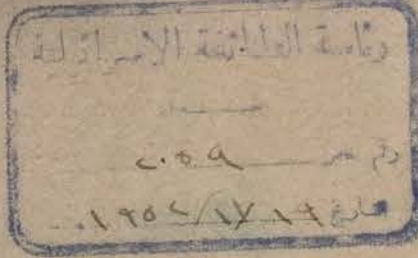 رئاسة الطائفة الاسرائيلية
رقم ٢٠٥٩
تاريخ ١٩/٧/١٩٥٢